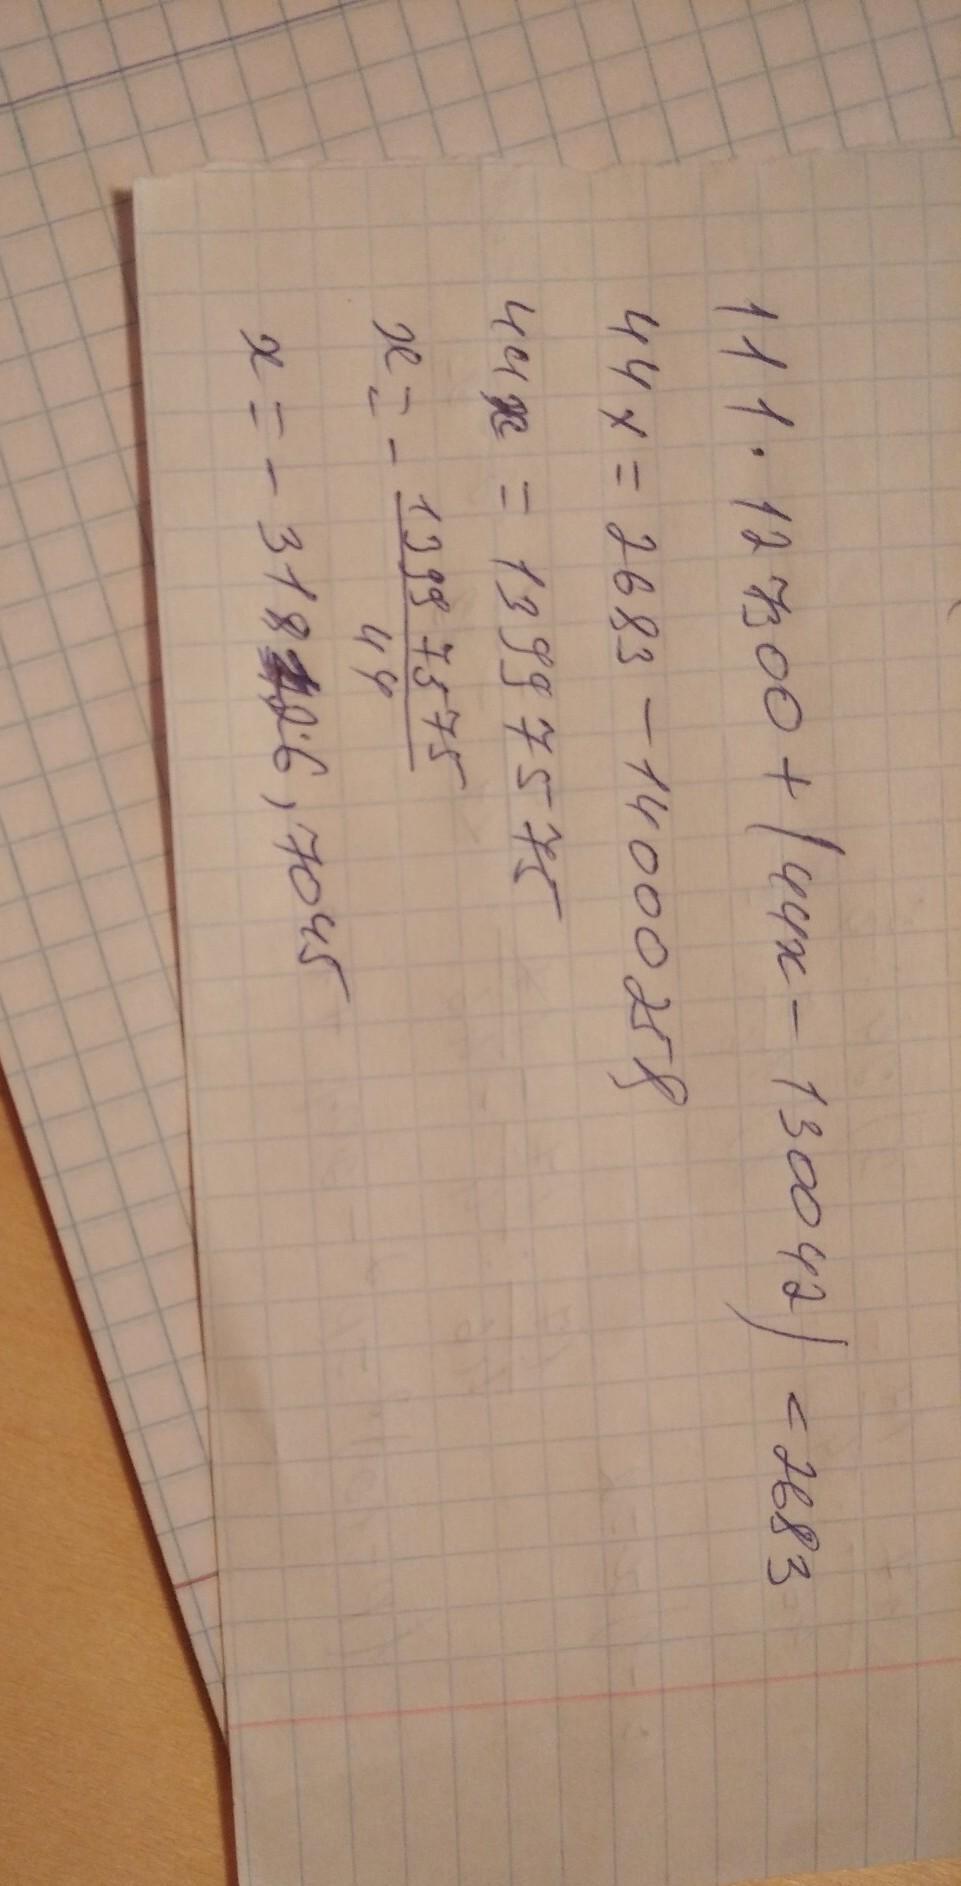 111·127300+(44x-130042)=2683
44x=2683-14000258
44x=13997575
x=-13997575/44
x=-318126,7045